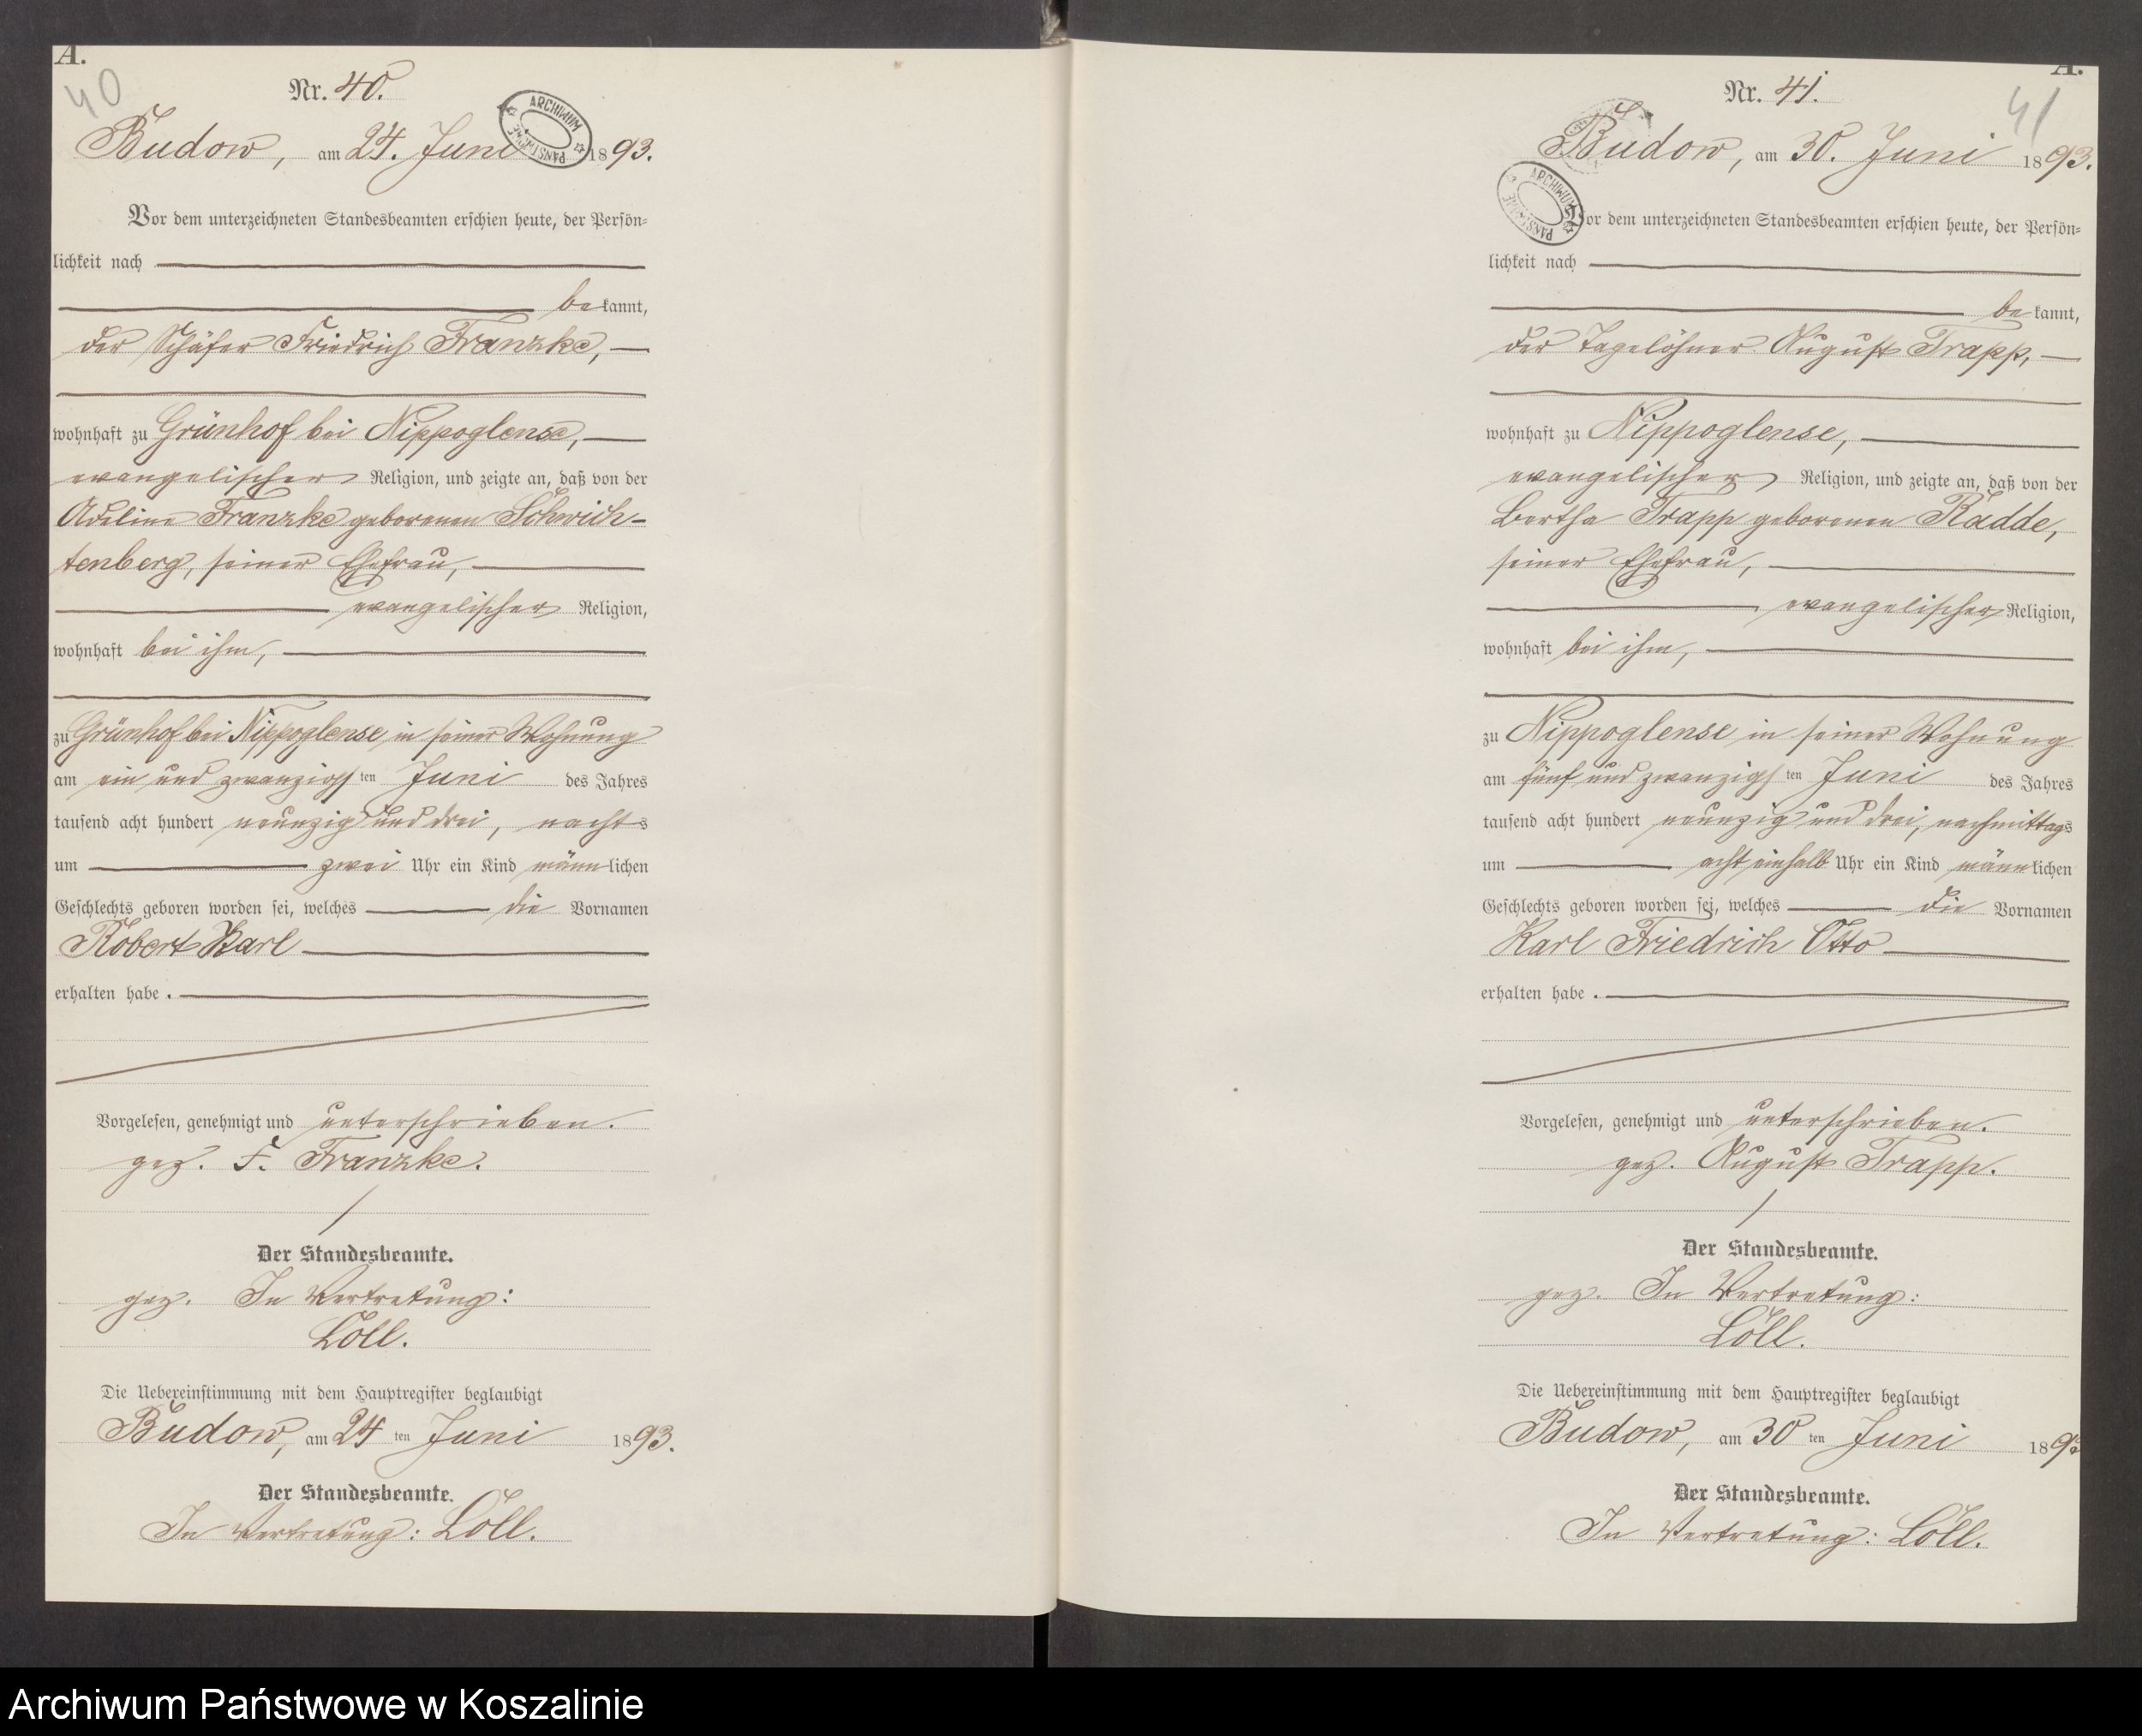 A.
40
Nr. 40.
Budow, am 24. Juni 1893.
ARCHIWUM PAŃSTWOWE
Vor dem unterzeichneten Standesbeamten erschien heute, der Persön-
lichkeit nach
bekannt,
der Schäfer Friedrich Franzke,
wohnhaft zu Grünhof bei Nippoglense,
evangelischer Religion, und zeigte an, daß von der
Adeline Franzke geborenen Schwich-
tenberg, seiner Ehefrau,
evangelischer Religion,
wohnhaft bei ihm,
zu Grünhof bei Nippoglense in seiner Wohnung
am ein und zwanzigsten Juni des Jahres
tausend acht hundert neunzig und drei, nachts
um zwei Uhr ein Kind männlichen
Geschlechts geboren worden sei, welches die Vornamen
Robert Karl
erhalten habe.
Vorgelesen, genehmigt und unterschrieben.
gez. F. Franzke.
Der Standesbeamte.
gez. In Vertretung:
Löll.
Die Uebereinstimmung mit dem Hauptregister beglaubigt
Budow, am 24ten Juni 1893.
Der Standesbeamte.
In Vertretung: Löll.
A.
41
Nr. 41.
Budow, am 30. Juni 1893.
ARCHIWUM PAŃSTWOWE
Vor dem unterzeichneten Standesbeamten erschien heute, der Persön-
lichkeit nach
bekannt,
der Tagelöhner August Trapp,
wohnhaft zu Nippoglense,
evangelischer Religion, und zeigte an, daß von der
Bertha Trapp geborenen Radde,
seiner Ehefrau,
evangelischer Religion,
wohnhaft bei ihm,
zu Nippoglense in seiner Wohnung
am fünf und zwanzigsten Juni des Jahres
tausend acht hundert neunzig und drei, nachmittags
um acht einhalb Uhr ein Kind männlichen
Geschlechts geboren worden sei, welches die Vornamen
Karl Friedrich Otto
erhalten habe.
Vorgelesen, genehmigt und unterschrieben.
gez. August Trapp.
Der Standesbeamte.
gez. In Vertretung:
Löll.
Die Uebereinstimmung mit dem Hauptregister beglaubigt
Budow, am 30ten Juni 1893
Der Standesbeamte.
In Vertretung: Löll.
Archiwum Państwowe w Koszalinie